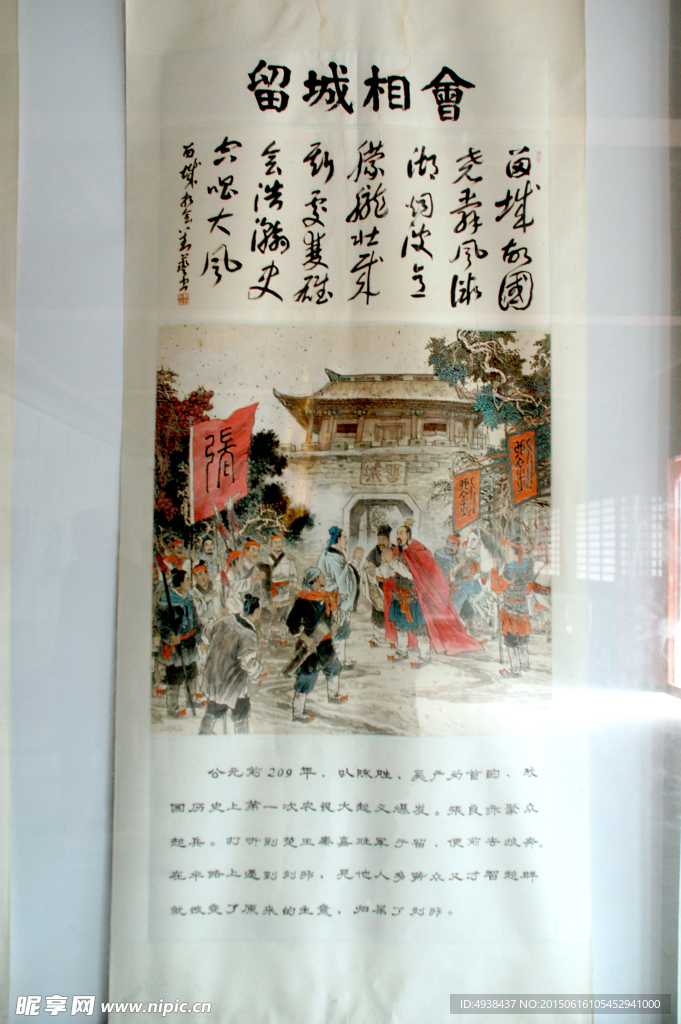 留城相會
留城故國
尧舜風微
湖烟波
朦朧壯哉
斯處雙雄
会浩瀚史
唱大風
張
留城
公元前209年、以陈胜、吴广为首的、我
国历史上第一次农民大起义爆发。張良亦聚众
起兵。时听到楚王秦嘉驻军于留，便前去投奔。
在半路上遇到刘邦，见他人多势众又才智超群
就改变了原来的主意、归属了刘邦。
昵享网 www.nipic.cn
ID:4938437 NO:20150616105452941000